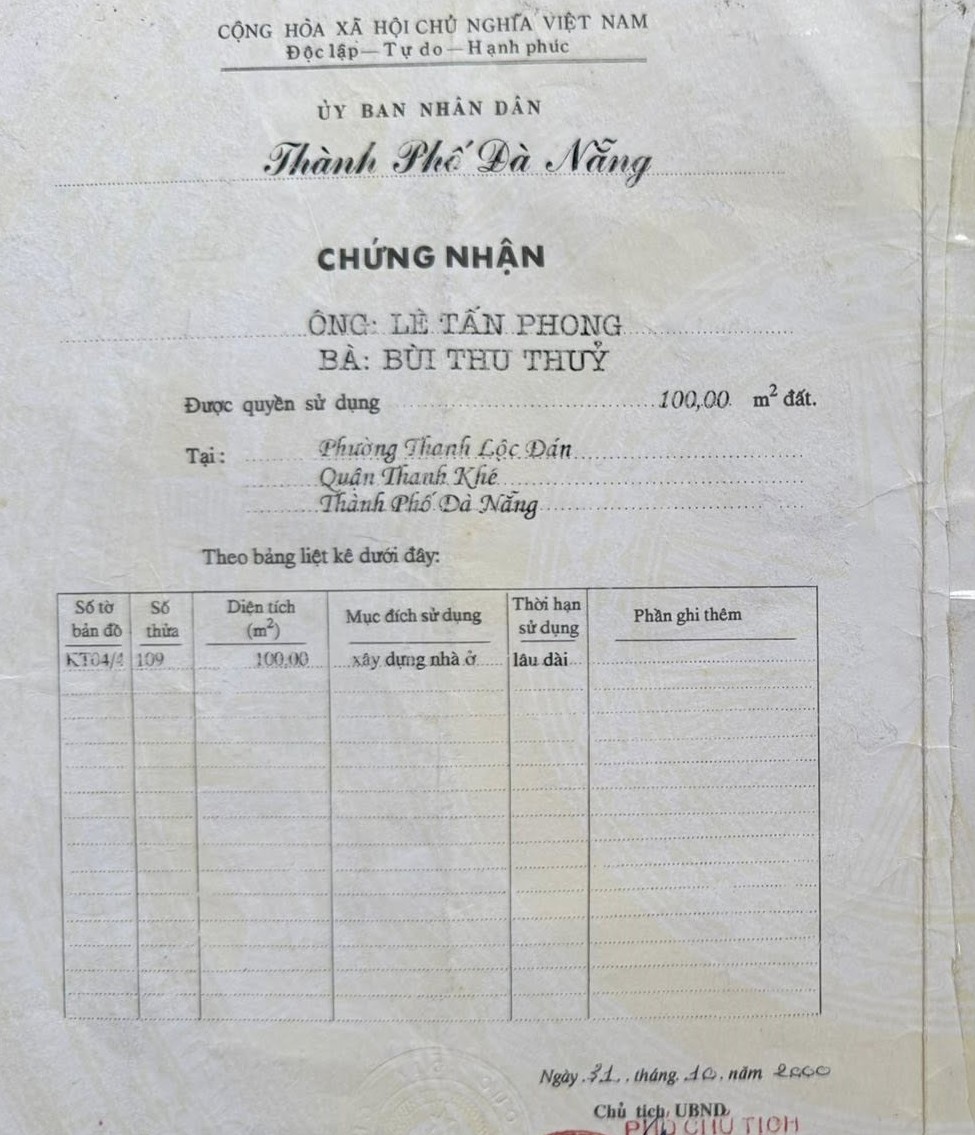 CỘNG HÒA XÃ HỘI CHỦ NGHĨA VIỆT NAM
Độc lập — Tự do — Hạnh phúc
ỦY BAN NHÂN DÂN
Thành Phố Đà Nẵng
CHỨNG NHẬN
ÔNG: LÊ TẤN PHONG
BÀ: BÙI THU THUỶ
Được quyền sử dụng 100,00 m² đất.
Tại: Phường Thanh Lộc Đán
Quận Thanh Khê
Thành Phố Đà Nẵng
Theo bảng liệt kê dưới đây:
Số tờ bản đồ Số thửa Diện tích (m²) Mục đích sử dụng Thời hạn sử dụng Phần ghi thêm
KT04/4 109 100,00 xây dựng nhà ở lâu dài
Ngày 31 tháng 10 năm 2000
Chủ tịch UBND
PHÓ CHỦ TỊCH